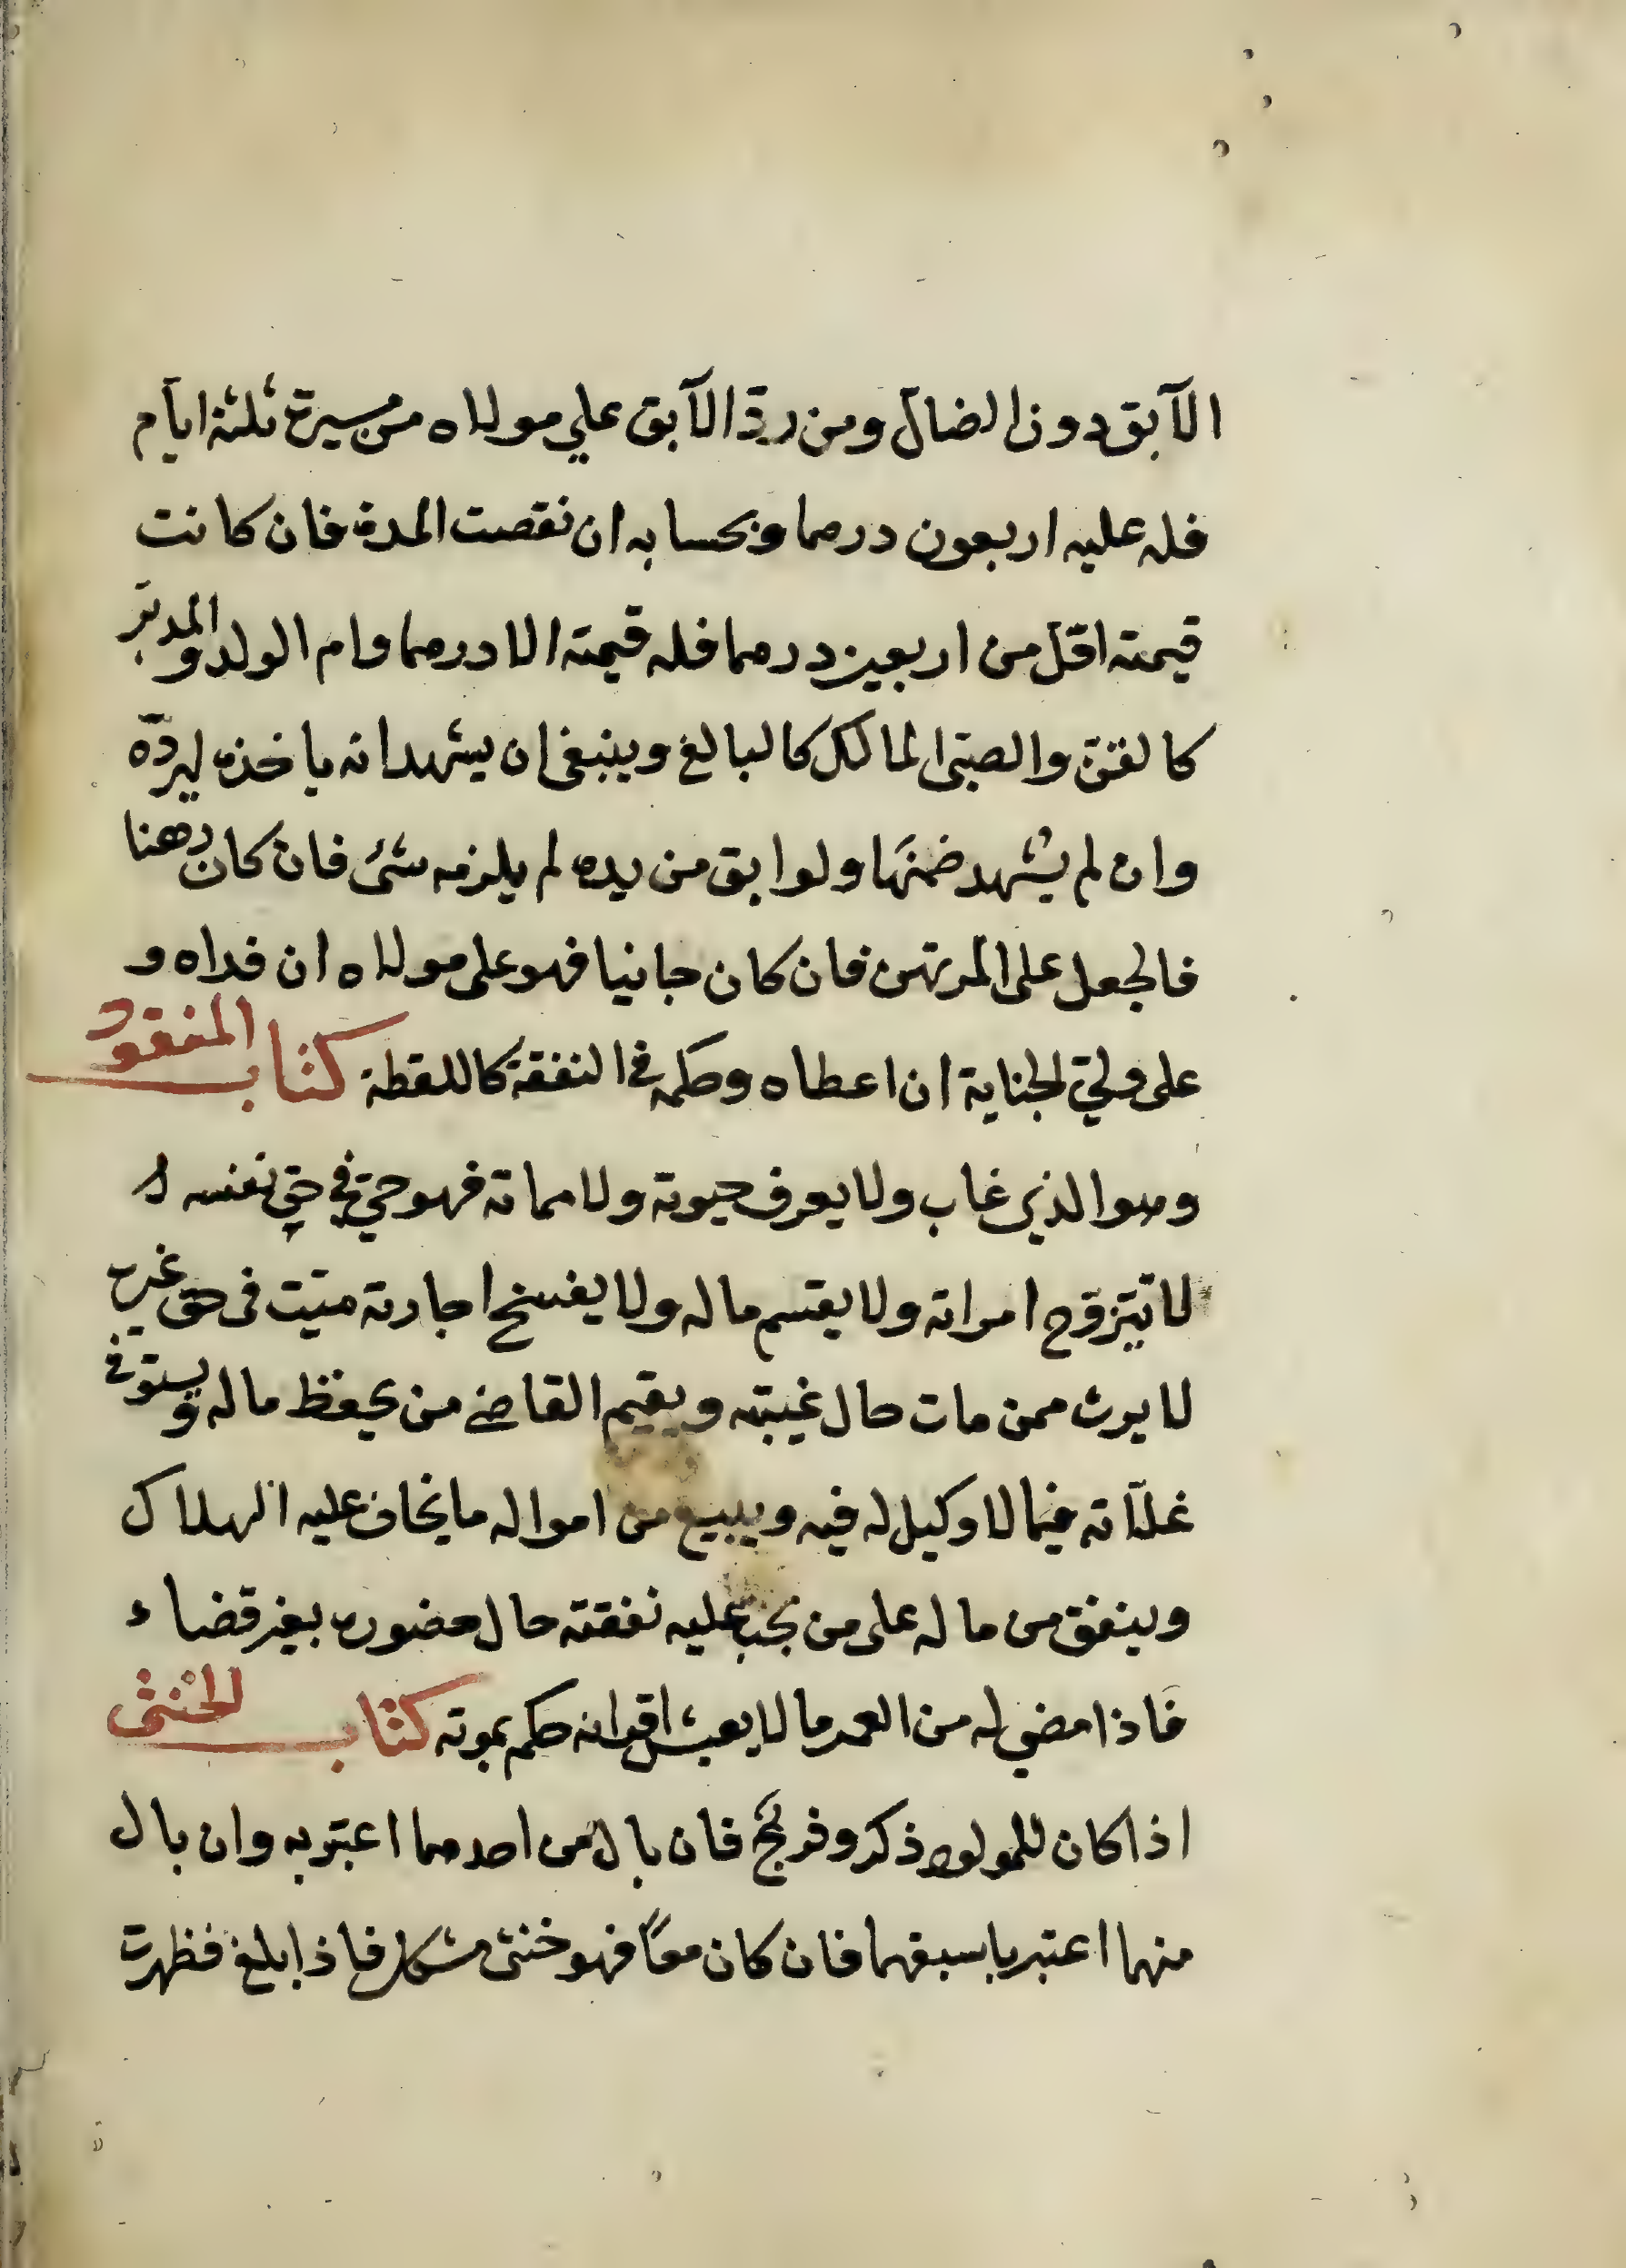 الآبق دون الضال ومن ردّ الآبق علي مولاه من مسيرة ثلثة ايام
فله عليه اربعون درهما وبحسابه ان نقصت المدة فان كانت
قيمته اقل من اربعين درهما فله قيمته الا درهما وام الولد والمدبّر
كالقنّ والصبيّ المالك كالبالغ وينبغي ان يشهد انه ياخذه ليردّه
وان لم يشهد ضمنها ولو ابق من يده لم يلزمه شئ فان كان رهنا
فالجعل على المرتهن فان كان جانيا فهو على مولاه ان فداه و
على وليّ الجناية ان اعطاه وحكمه في النفقة كاللقطة كتاب المفقود
وهو الذي غاب ولا يعرف حيوته ولا مماته فهو حيّ في حق نفسه
لا تتزوج امراته ولا يقسم ماله ولا يفسخ اجارته ميّت في حق غيره
لا يرث ممن مات حال غيبته ويقيم القاضي من يحفظ ماله ويستوفي
غلّاته فيما لا وكيل له فيه ويبيع من امواله ما يخاف عليه الهلاك
وينفق من ماله على من يجب عليه نفقته حال حضوره بغير قضاء
فاذا مضي له من العمر ما لا يعيش اقرانه حكم بموته كتاب الخنثى
اذا كان للمولود ذكر وفرج فان بال من احدهما اعتبر به وان بال
منهما اعتبر باسبقهما فان كان معًا فهو خنثى مشكل فاذا بلغ فظهرت